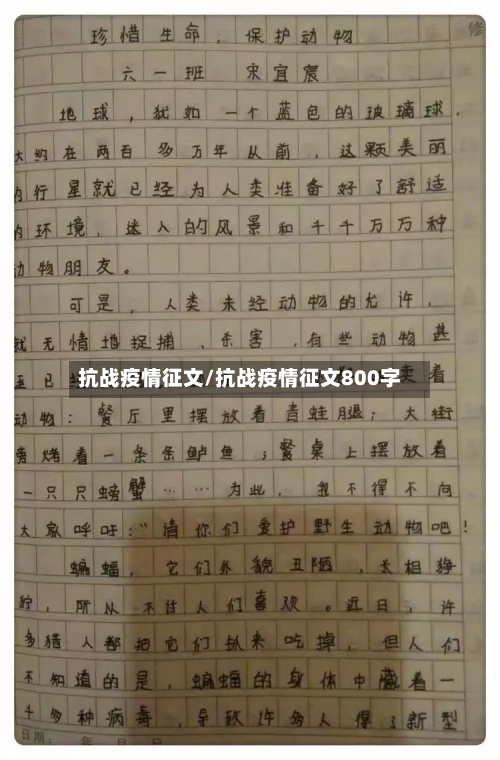 修
珍惜生命，保护动物
六一班 宋宜宸
地球，犹如一个蓝色的玻璃球，
大约在两百多万年从前，这颗美丽
的行星就已经为人类准备好了舒适
的环境，迷人的风景和千千万万种
动物朋友。
可是，人类未经动物的允许，
就无情地捉捕、杀害，有些动物甚
至已经
卖着
抗战疫情征文/抗战疫情征文800字
动物：餐厅里摆放着青蛙腿；大街
旁烤着一条条鲈鱼；餐桌上摆放着
一只只螃蟹……为此，我不得不向
大家呼吁：“请你们爱护野生动物吧！
蝙蝠，它们外貌丑陋，长相狰
狞，所以不讨人们喜欢。近日，许
多猎人都把它们抓来吃掉，但人们
不知道的是，蝙蝠的身体中藏着一
千多种病毒，导致许多人得了新型
日期： 年 月 日